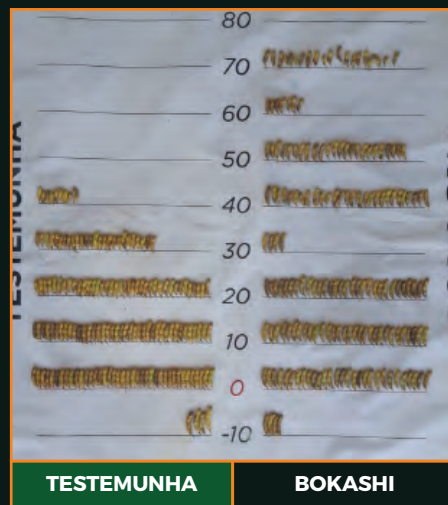 80
70
60
50
40
30
20
10
0
-10
TESTEMUNHA
TESTEMUNHA
BOKASHI